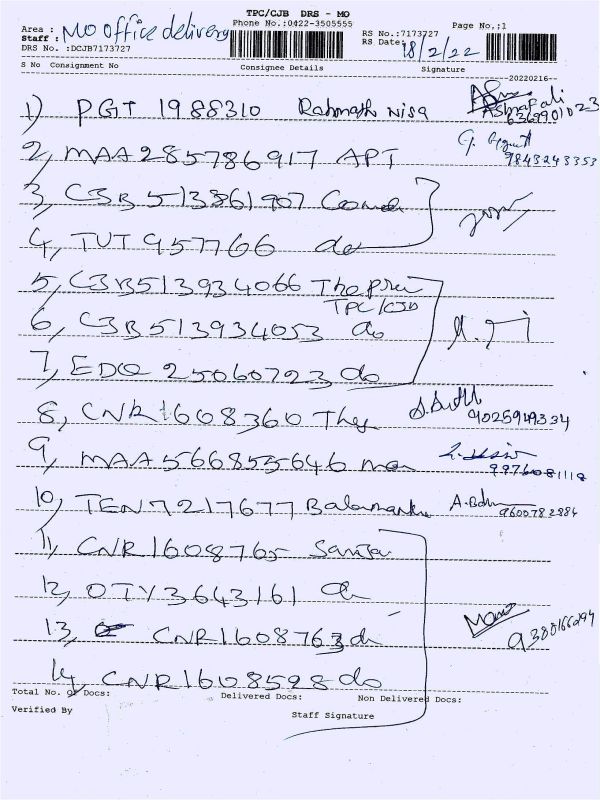 TPC/CJB DRS - MO
Area : MO office delivery
Phone No.:0422-3505555
Page No,:1
Staff :
RS No.:7173727
DRS No. :DCJB7173727
RS Date: 18/2/22
S No Consignment No Consignee Details Signature
--20220216--
1) PGT 1988310 Rahmath Nisa Ashraf ali
6369901023
2, MAA 285786917 APT
9843243353
3, CJB 513861907
4, TUT 957766 do
5, CJB513934066
TPC/CJB
6, CJB 513934053 do
7, EDO 25060723 do
8, CNR 1608360 9025949334
9, MAA 566855646 9976081118
10, TEN 7217677 9600782884
11, CNR 1608765
12, OTY 3643161
13, CNR 1608763 do
9380166294
14, CNR 1608598 do
Total No. of Docs: Delivered Docs: Non Delivered Docs:
Verified By
Staff Signature